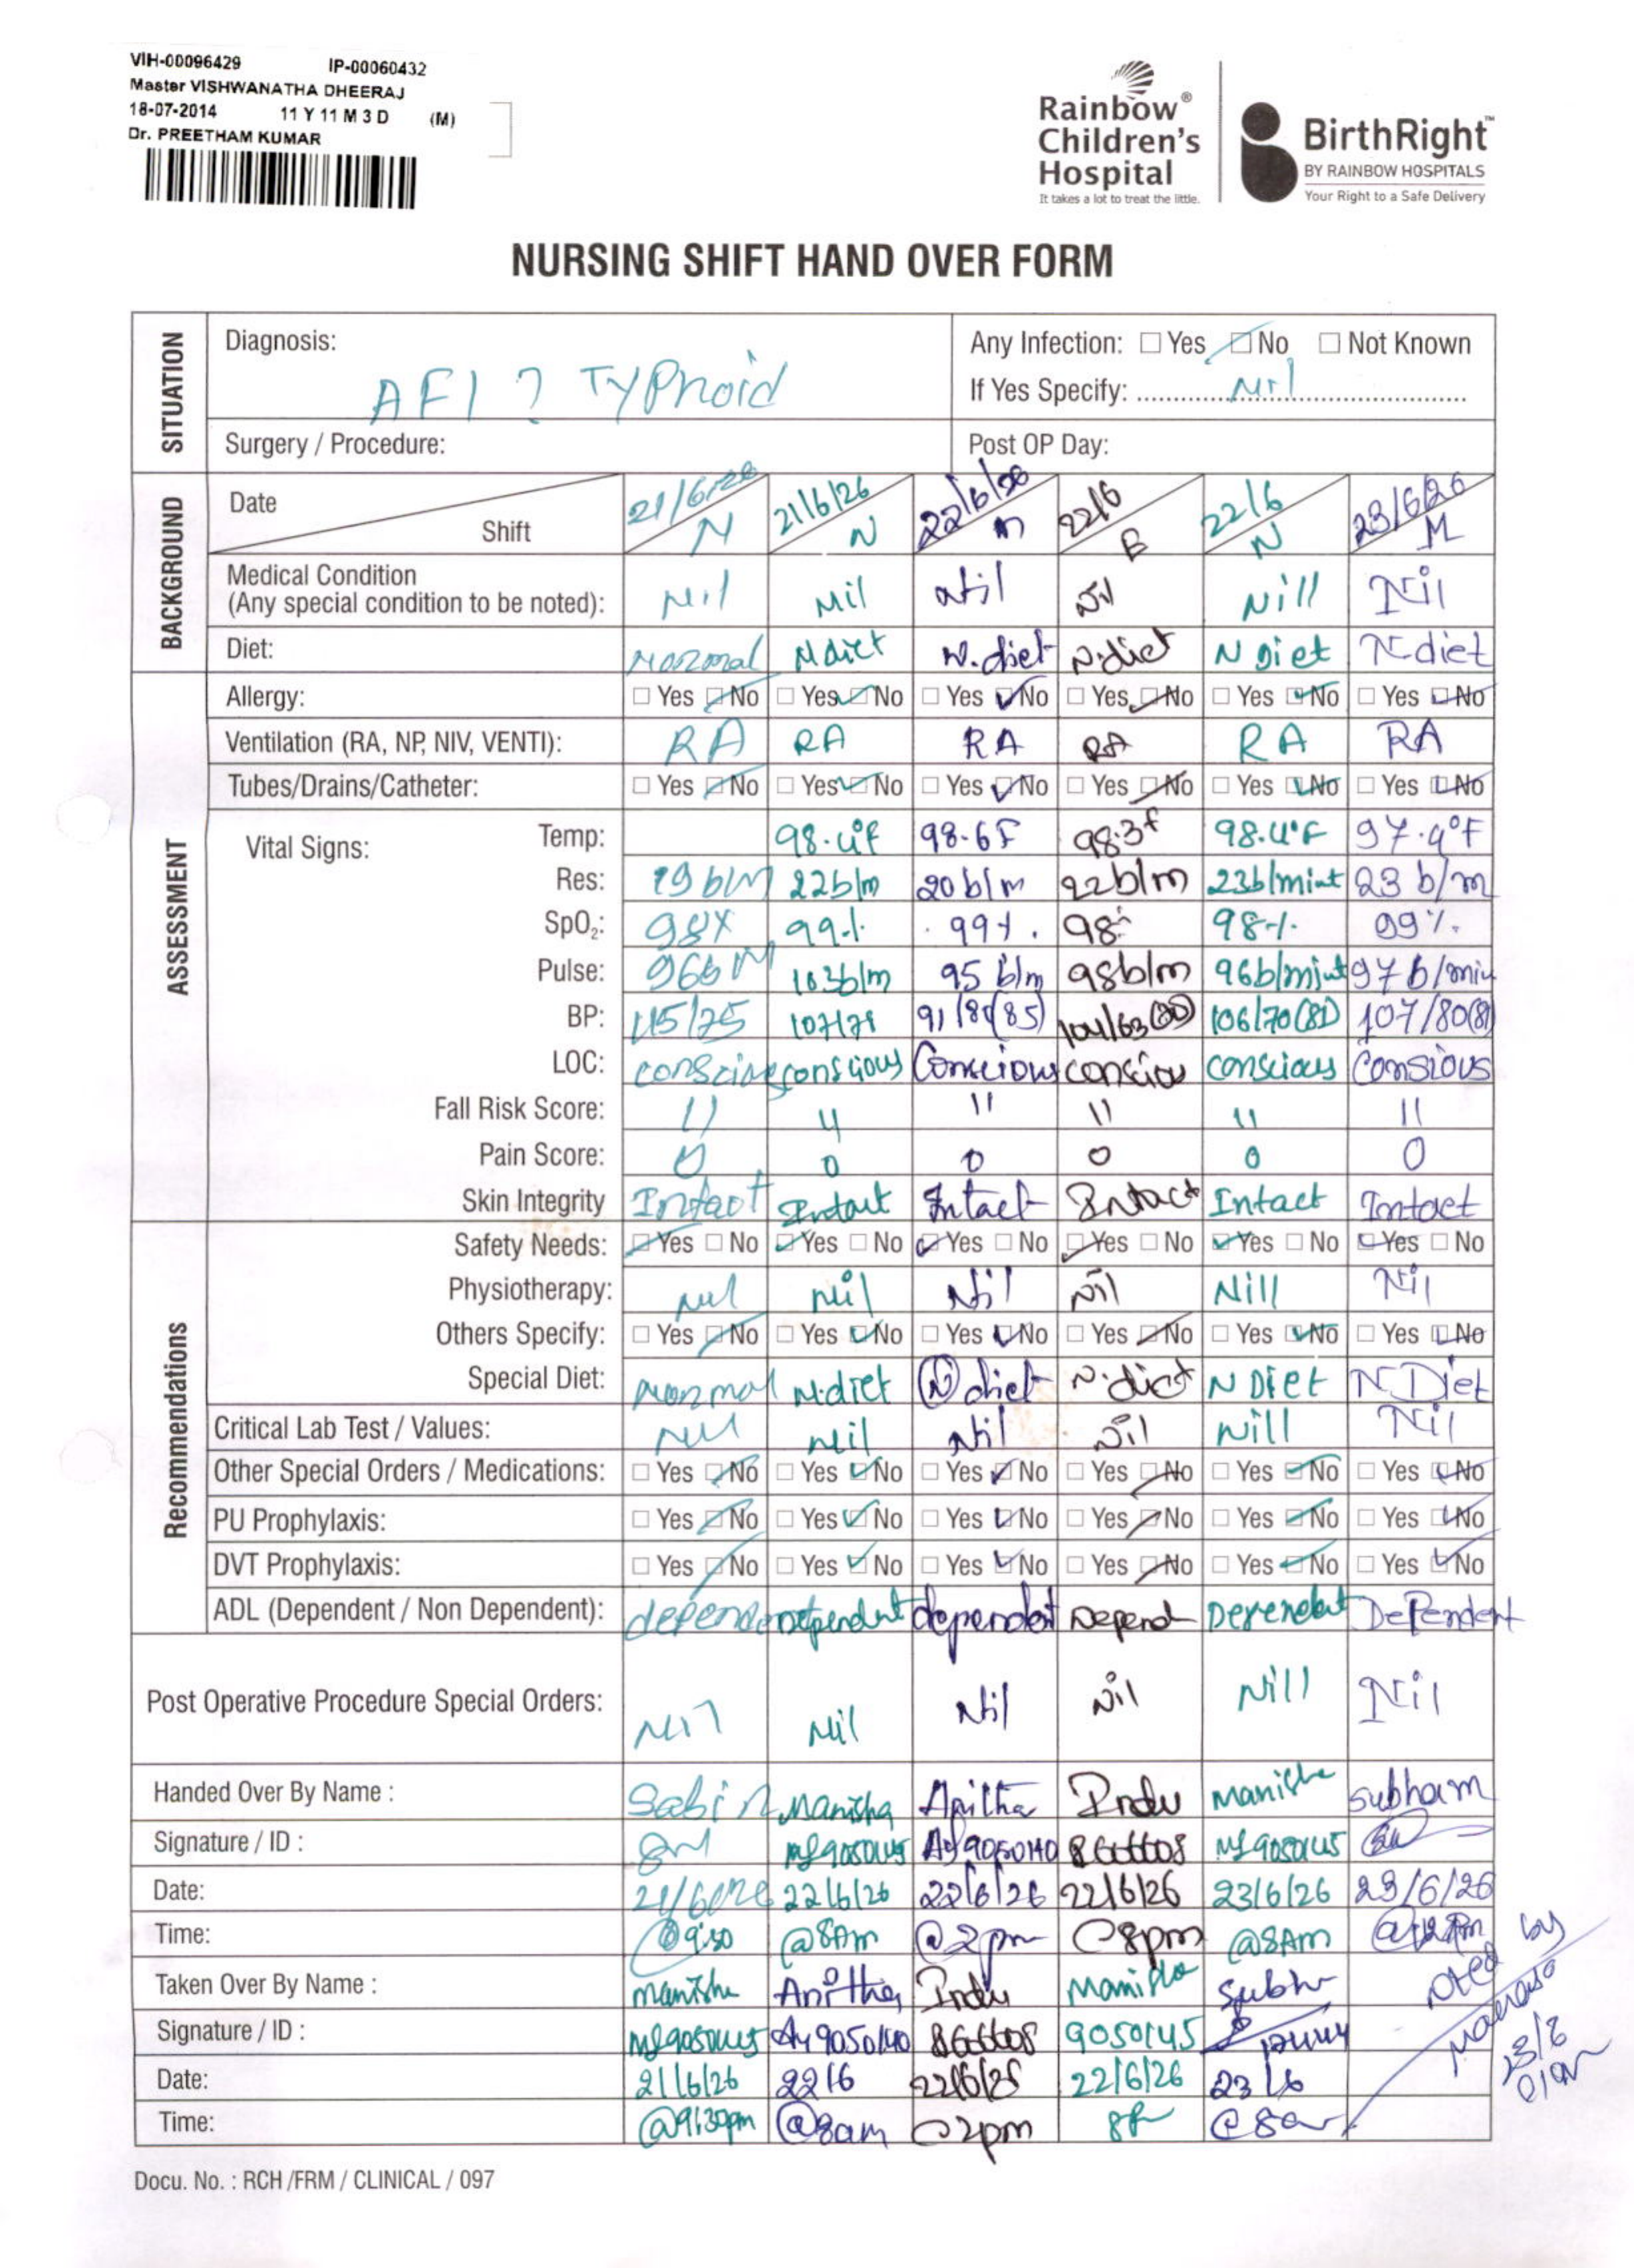 VIH-00096429 IP-00060432
Master VISHWANATHA DHEERAJ
18-07-2014 11 Y 11 M 3 D (M)
Dr. PREETHAM KUMAR
Rainbow®
Children's
Hospital
It takes a lot to treat the little.
BirthRight™
BY RAINBOW HOSPITALS
Your Right to a Safe Delivery
NURSING SHIFT HAND OVER FORM
SITUATION
Diagnosis: AFI ? Typhoid
Any Infection: Yes No Not Known
If Yes Specify: Nil
Surgery / Procedure: Post OP Day:
BACKGROUND
Date 21/6/26 21/6/26 22/6/26 22/6 22/6 23/6/26
Shift N N M E N M
Medical Condition
(Any special condition to be noted): Nil Nil Nil Nil Nill Nil
Diet: Normal N diet N.diet N.diet N Diet N-diet
ASSESSMENT
Allergy: Yes No Yes No Yes No Yes No Yes No Yes No
Ventilation (RA, NP, NIV, VENTI): RA RA RA RA RA RA
Tubes/Drains/Catheter: Yes No Yes No Yes No Yes No Yes No Yes No
Vital Signs:
Temp: 98.4°F 98.6F 98.3F 98.4°F 97.9°F
Res: 19 b/M 22b/m 20 b/m 22b/m 23b/mint 23 b/m
SpO₂: 98% 99% 99% 98% 98% 99%
Pulse: 96b M 103b/m 95 b/m 98b/m 96b/mint 97 b/min
BP: 115/75 107/71 91/80(85) 104/63(80) 106/70(81) 107/80(8
LOC: conscious conscious Conscious conscious conscious Consious
Fall Risk Score: 11 11 11 11 11 11
Pain Score: 0 0 0 0 0 0
Skin Integrity Intact Intact Intact Intact Intact Intact
Recommendations
Safety Needs: Yes No Yes No Yes No Yes No Yes No Yes No
Physiotherapy: Nil Nil Nil Nil Nill Nil
Others Specify: Yes No Yes No Yes No Yes No Yes No Yes No
Special Diet: Normal N.diet (N) diet N.diet N Diet N Diet
Critical Lab Test / Values: Nil Nil Nil Nil Nill Nil
Other Special Orders / Medications: Yes No Yes No Yes No Yes No Yes No Yes No
PU Prophylaxis: Yes No Yes No Yes No Yes No Yes No Yes No
DVT Prophylaxis: Yes No Yes No Yes No Yes No Yes No Yes No
ADL (Dependent / Non Dependent): dependent dependent dependent Depend Dependent Dependent
Post Operative Procedure Special Orders: Nil Nil Nil Nil Nill Nil
Handed Over By Name : Sabin Manisha Anitha Indu Manisha Subham
Signature / ID : 9050145 9050140 9050145
Date: 22/6/26 22/6/26 22/6/26 23/6/26 23/6/26
Time: @9:30 @8Am @2pm @8pm @8Am
Taken Over By Name : Manisha Anitha Indu Manisha Subha
Signature / ID : 9050145 9050140 9050145
Date: 21/6/26 22/6 22/6/26 22/6/26 23/6
Time: @9:30pm @8am @2pm 8P @8am
Noted by
Docu. No. : RCH /FRM / CLINICAL / 097